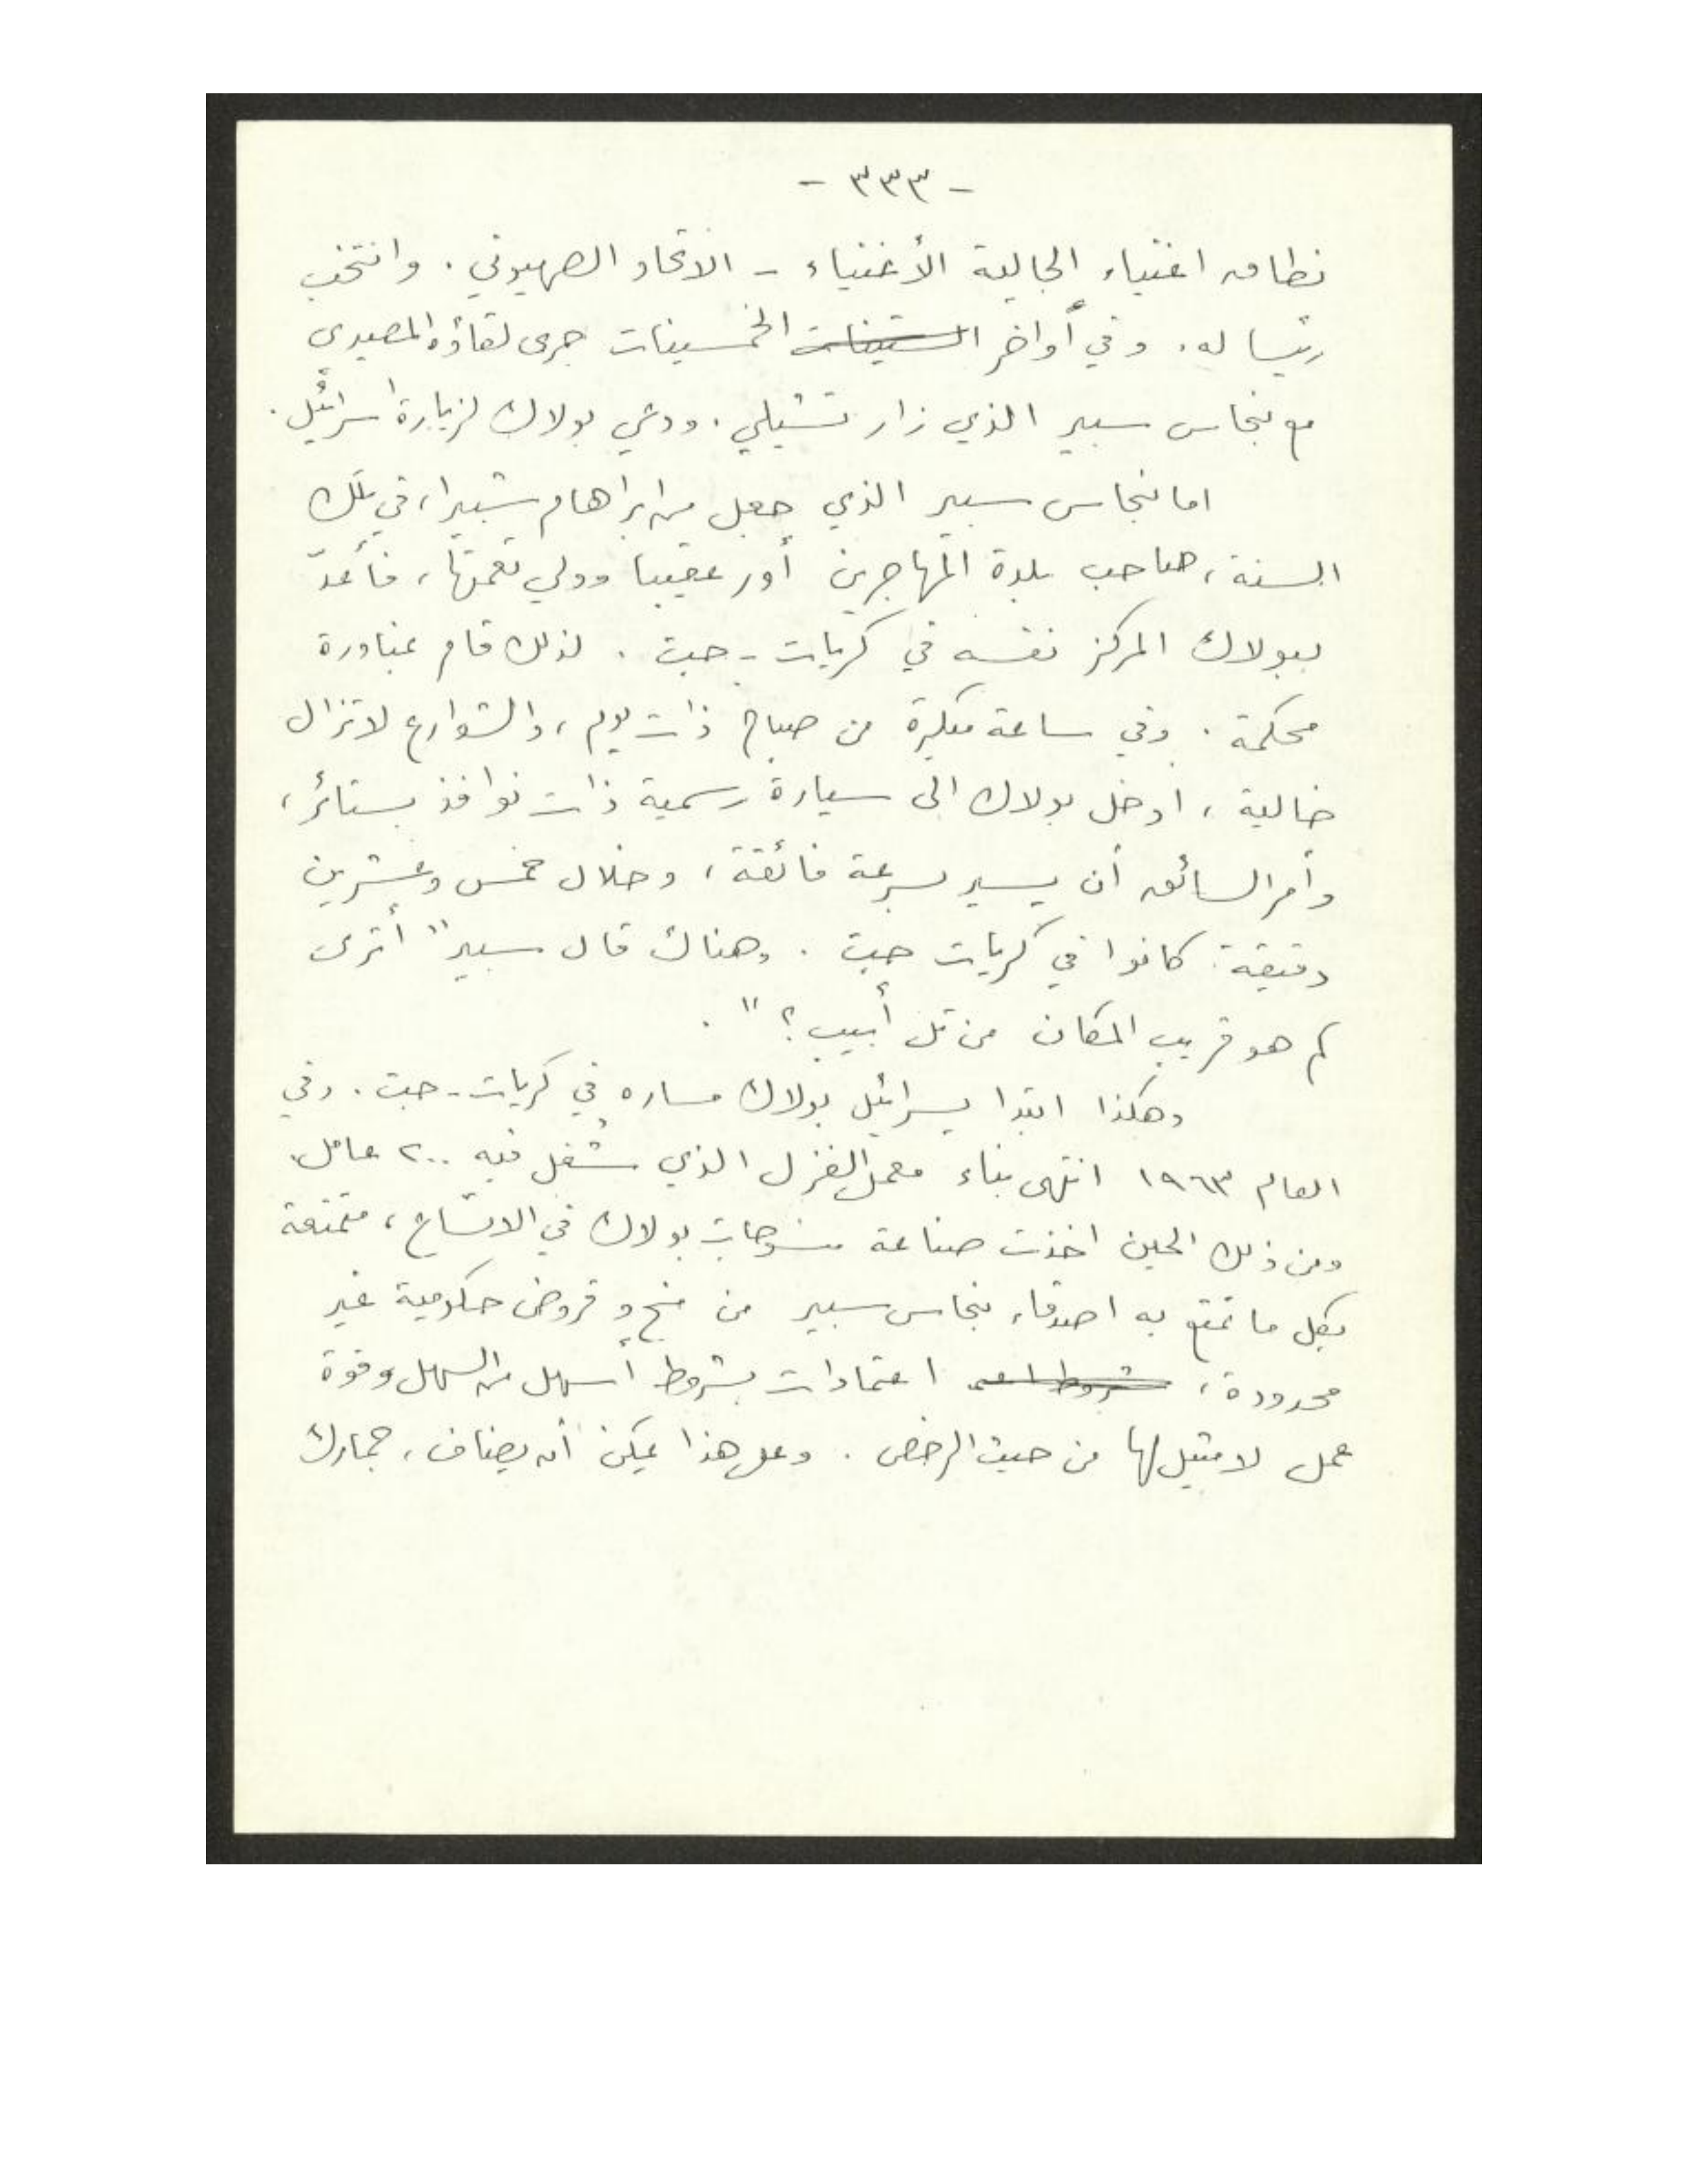 - ٣٣٣ -
نطاق اغنياء الجالية الأغنياء - الاتحاد الصهيوني . وانتخب
رئيسا له . وفي أواخر الستينات الخمسينات جرى لقاؤه المصيري
مع بنحاس سبير الذي زار تشيلي . ودعي بولاك لزيارة اسرائيل .
اما بنحاس سبير الذي جعل من ابراهام شبيرا ، في تلك
السنة ، صاحب بلدة المهاجرين أور عقيبا وولي نعمتها ، فأعدّ
لبولاك المركز نفسه في كريات - جت . لذلك قام بمناورة
محكمة . وفي ساعة مبكرة من صباح ذات يوم ، والشوارع لا تزال
خالية ، ادخل بولاك الى سيارة رسمية ذات نوافذ بستائر ،
وأمر السائق أن يسير بسرعة فائقة ، وخلال خمس وعشرين
دقيقة كانوا في كريات جت . وهناك قال سبير " أترى
كم هو قريب المكان من تل أبيب ؟ " .
وهكذا ابتدا يسرائيل بولاك مساره في كريات - جت . وفي
العام ١٩٦٣ انتهى بناء معمل الغزل الذي شغل فيه ٢٠٠ عامل
ومن ذلك الحين اخذت صناعة منسوجات بولاك في الاتساع ، متمتعة
بكل ما تمتع به اصدقاء بنحاس سبير من منح و قروض حكومية غير
محدودة ، اعتمادات بشروط أسهل من السهل وقوة
عمل لا مثيل لها من حيث الرخص . وعلى هذا يمكن أن يضاف ، جمارك